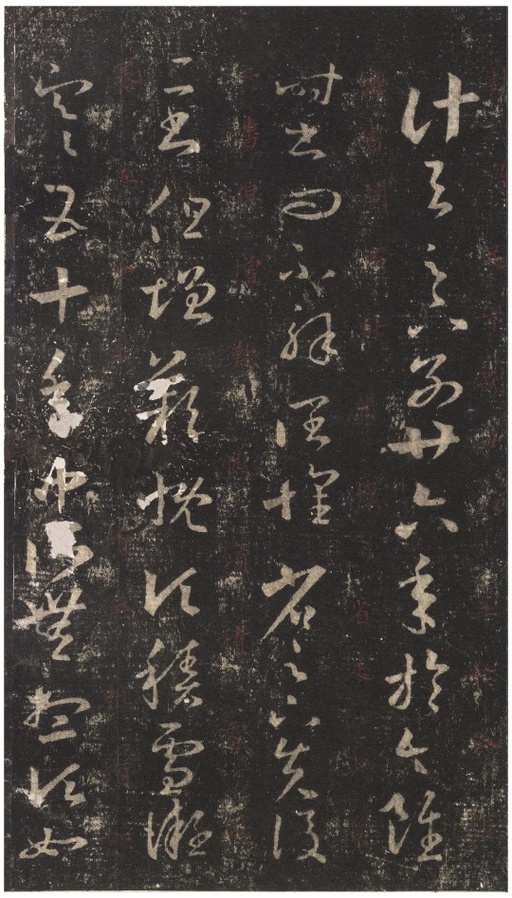 計與足下別廿六年於今雖
時書問不解闊懷省足下先後
二書但增歎慨頃積雪凝
寒五十年中所無想頃如